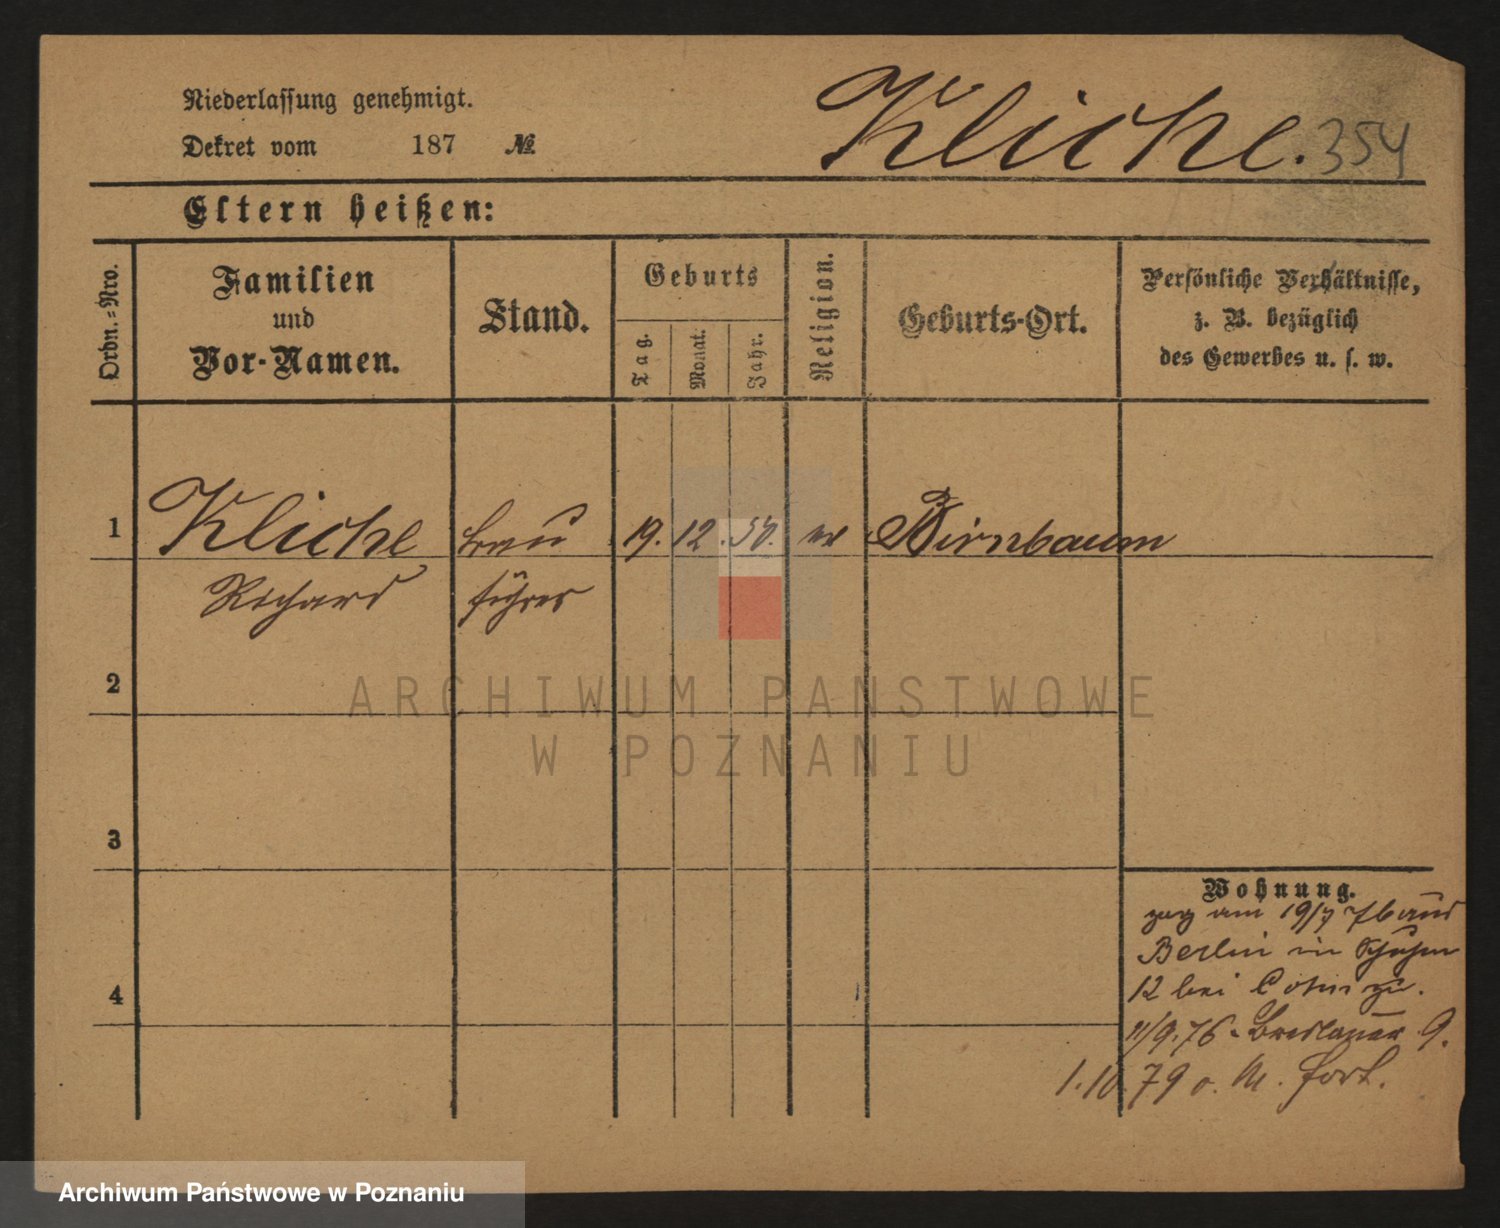 Niederlassung genehmigt.
Dekret vom 187 №
Kliche. 354
Eltern heißen:
Ordn.-Nro.
Familien
und
Vor-Namen.
Stand.
Geburts
Tag.
Monat.
Jahr.
Religion.
Geburts-Ort.
Persönliche Verhältnisse,
z. B. bezüglich
des Gewerbes u. s. w.
1 Kliche Bau 19. 12. 50. ev Birnbaum
Richard führer
2
ARCHIWUM PAŃSTWOWE
W POZNANIU
3
Wohnung.
zog am 19/7 76 aus
Berlin in
12 bei zu.
4
11/9. 76 Breslauer 9.
1. 10. 79 o. M. fort.
Archiwum Państwowe w Poznaniu